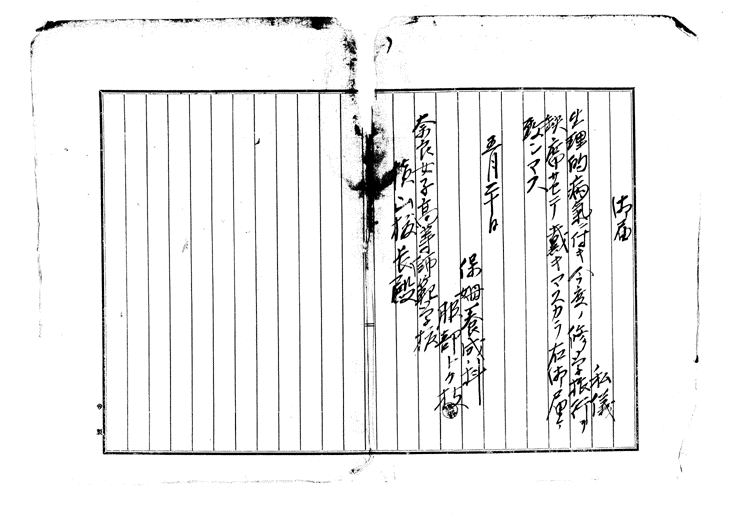 御届
私儀
生理的病氣ニ付キ今度ノ修学旅行ヲ
缺席サセテ戴キマスカラ右御届ケ
致シマス
五月二十日
保姆養成科
服部トク
奈良女子高等師範学校
横山校長殿